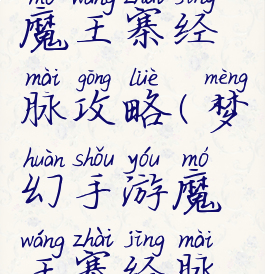 mó wáng zhài jīng
魔王寨经
mài gōng lüè mèng
脉攻略(梦
huàn shǒu yóu mó
幻手游魔
wáng zhài jīng mài
王寨经脉